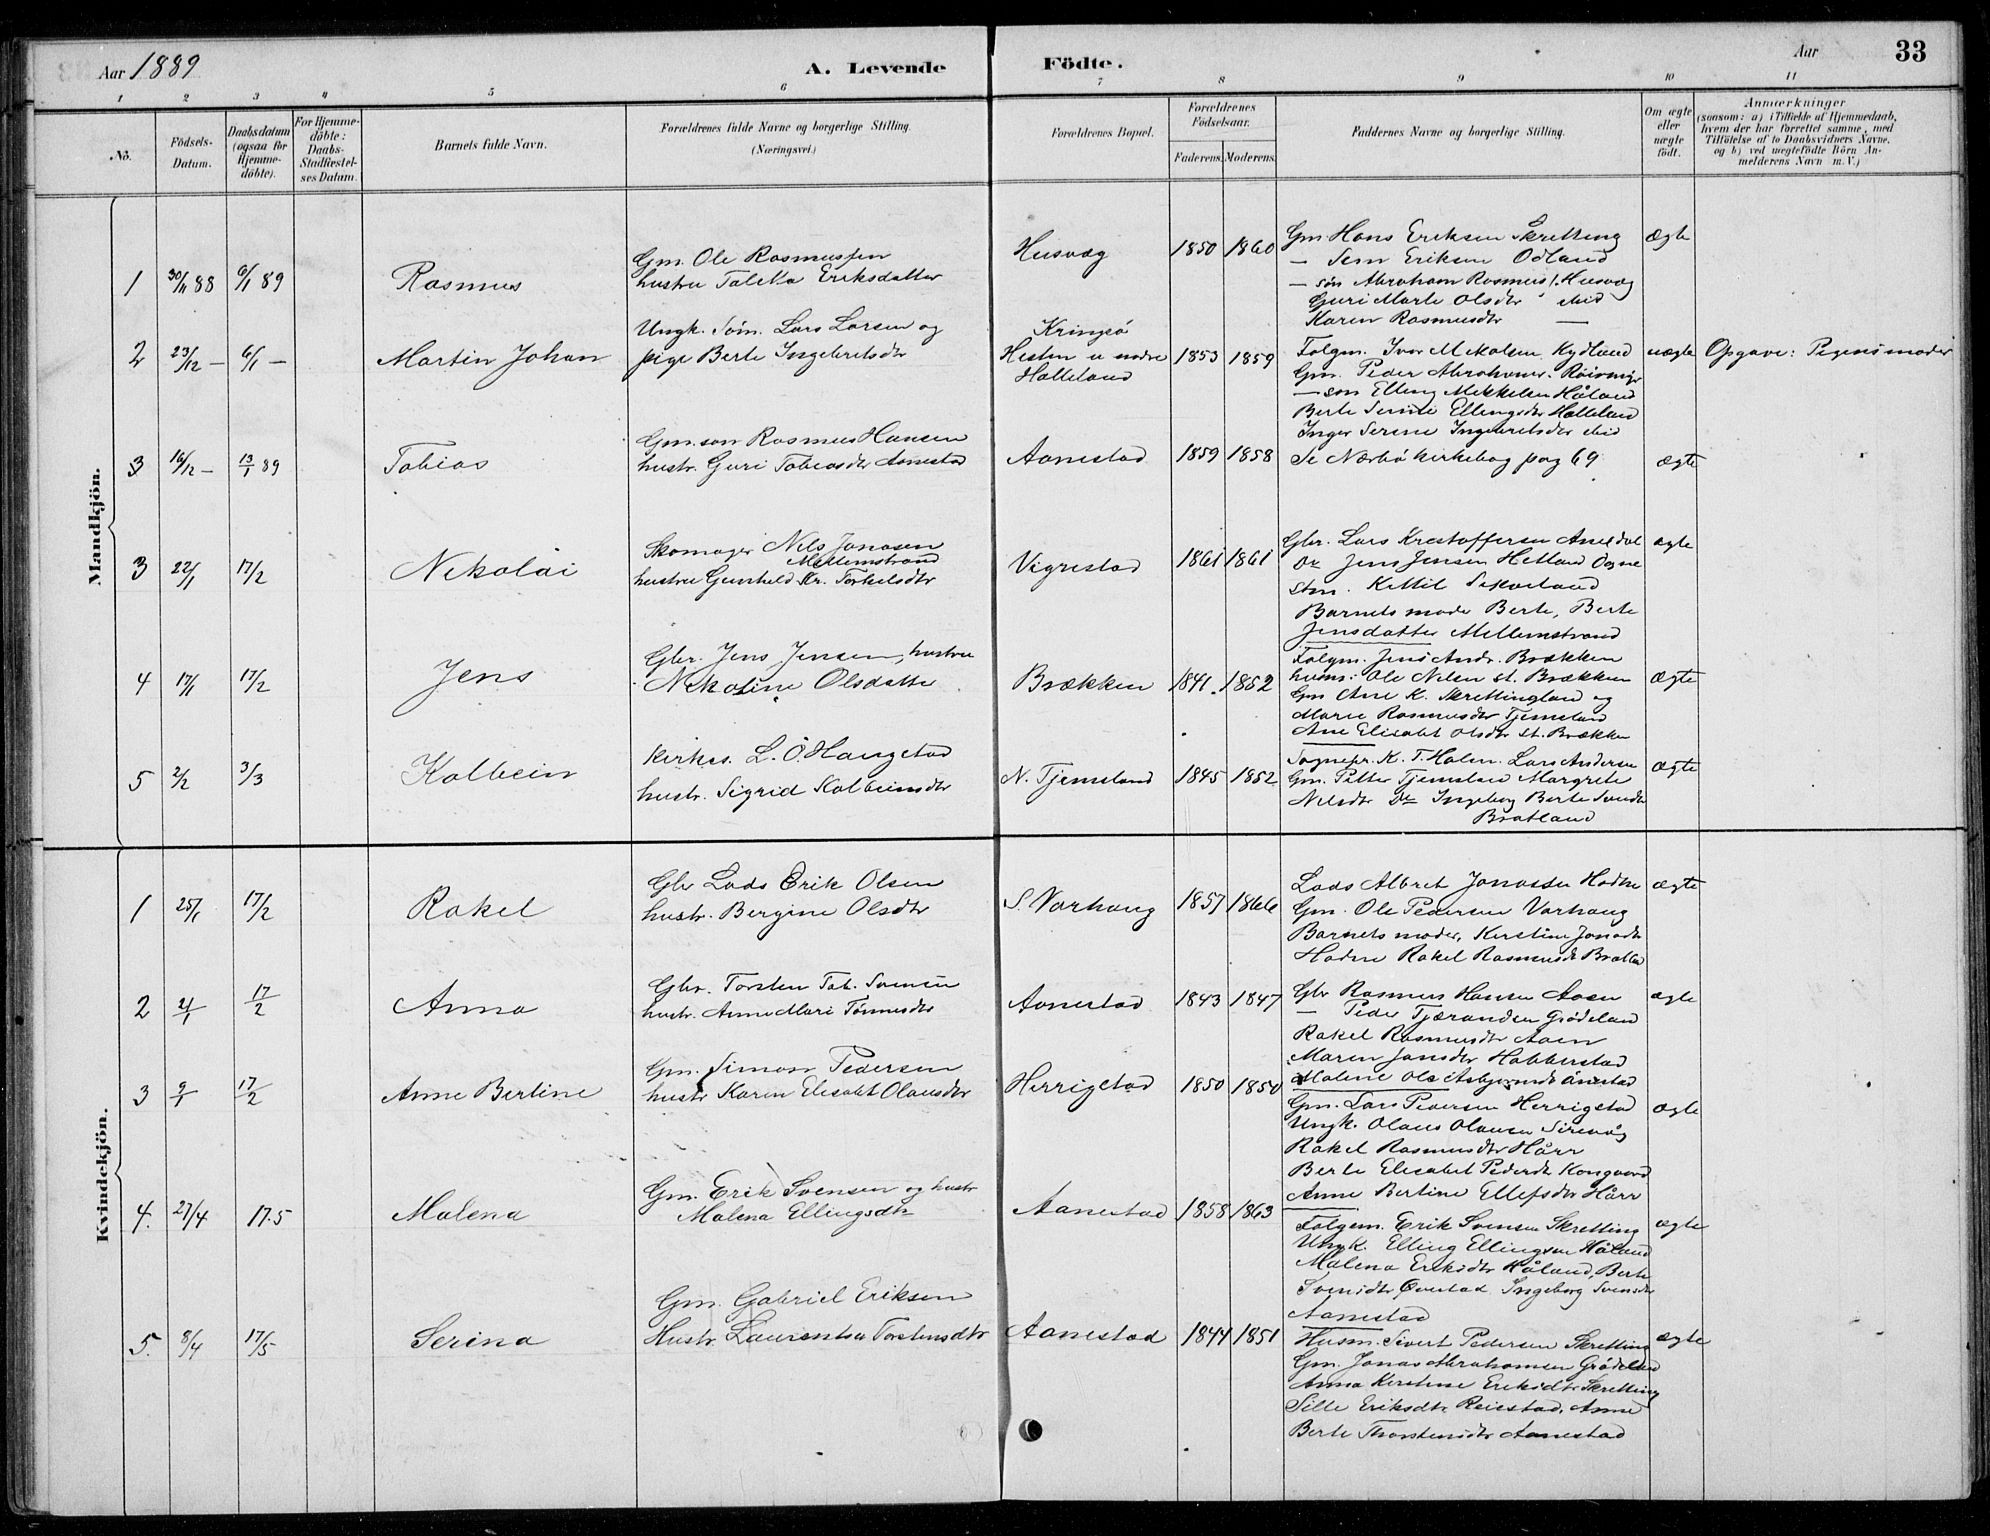 Aar 1889
A. Levende Födte.
Aar
33
1 2 3 4 5 6 7 8 9 10 11
No.
Födsels-Datum.
Daabsdatum (ogsaa for Hjemme-döbte).
For Hjemme-döbte: Daabs-Stadfæstel-ses Datum.
Barnets fulde Navn.
Forældrenes fulde Navne og borgerlige Stilling.
(Næringsvei.)
Forældrenes Bopæl.
Forældrenes Födselsaar.
Faderens. Moderens.
Faddernes Navne og borgerlige Stilling.
Om ægte eller uægte født.
Anmærkninger
(saasom: a) i Tilfælde af Hjemmedaab, hvem der har forrettet samme, med Tilföielse af to Daabsvidners Navne, og b) ved uægtefödte Börn Anmelderens Navn m. V.)
Mandkjön.
1 30/11 88 6/1 89 Rasmus
Gm. Ole Rasmussen
hustru Taletta Eriksdatter
Husvæg 1850 1860
Gm. Hans Eriksen Skretting
— Sem Eriksen Odland
— søn Abraham Rasmus. Husvæg
Guri Marte Olsdtr ibid
Karen Rasmusdtr —
ægte
2 23/12 — 6/1 — Martin Johan
Ungk. Søm. Lars Larsen og
pige Berte Ingebretsdtr
Kringsö
Hesten u nedre
Halleland
1853 1859
Folgm. Ivar Mekalsen Kydland
Gm. Peder Abrahams.
— søn Elling Mekkelsen Håland
Berte Serine Ellingsdtr Halleland
Inger Serine Ingebretsdtr ibid
uægte Opgave: Pigens moder
3 16/12 — 13/1 89 Tobias
Gm. søn Rasmus Hansen
hustr. Guri Tobiasdtr Aanestad
Aanestad 1859 1858 Se Nærbö kirkebog pag 69 ægte
3 22/1 17/2 Nikolai
Skomager Nils Jonasen
Mellemstrand
hustru Gunhild Kr. Torkelsdtr
Vigrestad 1861 1861
Gbr. Lars Krestoffersen Aneidal
Do Jens Jensen Hetland Ogne
Stm. Kittil
Barnets mode Berte, Berte
Jensdatter Mellemstrand
ægte
4 17/1 17/2 Jens
Gbr. Jens Jensen, hustru
Nikoline Olsdatte
Brækken 1841. 1852
Folgm. Jens Andr. Brækken
husm: Ole Nilsen st. Brækken
Gm Ane K. Skrettingland og
Marie Rasmusdtr Tjemsland
Ane Elisabet Olsdtr St. Brækken
ægte
5 2/2 3/3 Kolbein
Kirkes. L. O. Haugstad
hustr. Sigrid Kolbeinsdtr
N. Tjemsland 1845 1852
Sognepr. K. T. Halm. Lars Andersen
Gm. Petter Tjemsland Margrete
Nilsdtr Do Ingeborg Berte Svendtr
Bratland
ægte
Kvindekjön.
1 25/1 17/2 Rakel
Gbr Lods Erik Olsen
hustr. Bergine Olsdtr
S. Varhaug 1857 1866
Lods Albret Jonassen Hadne
Gm. Ole Pedersen Varhaug
Barnets moder, Kerstine Jonsdtr
Hadne Rakel Rasmusdt
ægte
2 2/1 17/2 Anna
Gbr. Torsten Tob. Svensen
hustr. Anne Mari Tønnesdtr
Aanestad 1843 1847
Gbr Rasmus Hansen Aaen
— Peder Tjærandsen Grödeland
Rakel Rasmusdtr Aaen
Maren Jansdtr Habberstad
Malene Ols Asbjørnsdt Ånestad
ægte
3 9/1 17/2 Anne Bertine
Gm. Simon Pedersen
hustr Karen Elisabet Olausdtr
Herrigstad 1850 1850
Gm. Lars Pedersen Herrigstad
Ungk. Olaus Olausen Sirevåg
Rakel Rasmusdtr Hårr
Berte Elisabet Pedersdt Kongevard
Anne Bertine Ellefsdtr Hårr
ægte
4. 27/4 17.5 Malena
Gm. Erik Svensen og hustr
Malena Ellingsdtr
Aanestad 1858 1863
Folgem. Erik Svensen Skretting
Ungk. Elling Ellingsen Håland
Malena Eriksdtr Håland, Berte
Svensdtr Overstad Ingeborg Svensdtr
Aanestad
ægte
5. 8/4 17/5 Serina
Gm. Gabriel Eriksen
Hustr. Laurentsa Torstensdtr
Aanestad 1844 1851
Husm. Sivert Pedersen Skretting
Gm. Jonas Abrahamsen Grödeland
Anna Kerstine Eriksdtr Skretting
Sille Eriksdtr Reiestad. Anne
Berte Thorstensdtr Aanestad
ægte